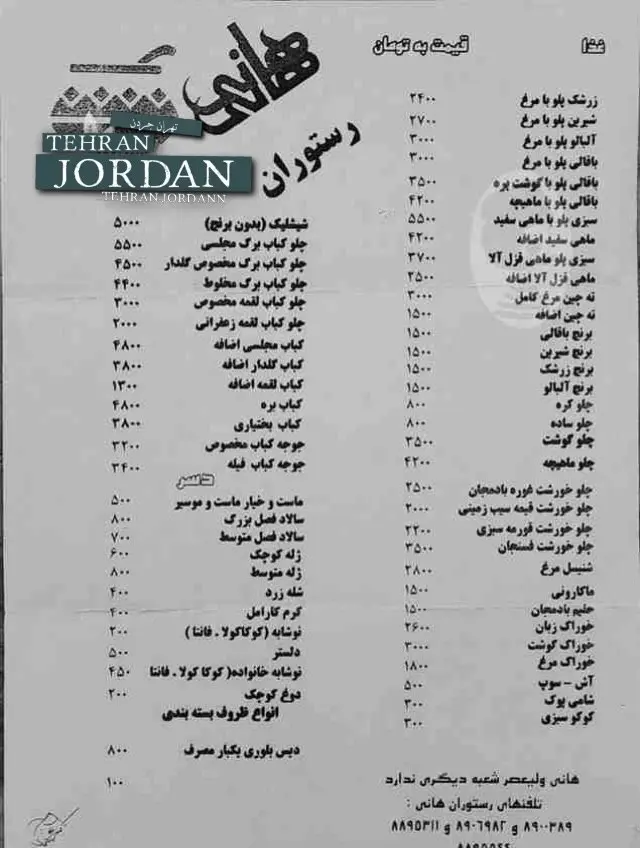 غذا قیمت به تومان
زرشک پلو با مرغ ۲۴۰۰
شیرین پلو با مرغ ۲۷۰۰
آلبالو پلو با مرغ ۳۰۰۰
باقالی پلو با مرغ ۳۰۰۰
باقالی پلو با گوشت بره ۳۵۰۰
باقالی پلو با ماهیچه ۴۲۰۰
سبزی پلو با ماهی سفید ۵۵۰۰
ماهی سفید اضافه ۴۲۰۰
سبزی پلو ماهی قزل آلا ۳۷۰۰
ماهی قزل آلا اضافه ۲۵۰۰
ته چین مرغ کامل ۳۰۰۰
ته چین اضافه ۱۵۰۰
برنج باقالی ۱۵۰۰
برنج شیرین ۱۵۰۰
برنج زرشک ۱۵۰۰
برنج آلبالو ۱۵۰۰
چلو کره ۸۰۰
چلو ساده ۸۰۰
چلو گوشت ۳۵۰۰
چلو ماهیچه ۴۲۰۰
چلو خورشت غوره بادمجان ۲۵۰۰
چلو خورشت قیمه سیب زمینی ۲۰۰۰
چلو خورشت قورمه سبزی ۲۲۰۰
چلو خورشت فسنجان ۳۵۰۰
شنیسل مرغ ۲۸۰۰
ماکارونی ۱۵۰۰
حلیم بادمجان ۱۵۰۰
خوراک زبان ۲۶۰۰
خوراک گوشت ۳۰۰۰
خوراک مرغ ۱۸۰۰
آش - سوپ ۵۰۰
شامی پوک ۳۰۰
کوکو سبزی ۳۰۰
هانی ولیعصر شعبه دیگری ندارد
تلفنهای رستوران هانی :
۸۹۰۰۳۸۹ و ۸۹۰۶۹۸۲ و ۸۸۹۵۳۱۱
هانی
رستوران
تهران جردن
TEHRAN
JORDAN
TEHRAN JORDANN
شیشلیک (بدون برنج) ۵۰۰۰
چلو کباب برگ مجلسی ۵۵۰۰
چلو کباب برگ مخصوص گلدار ۴۵۰۰
چلو کباب برگ مخلوط ۴۴۰۰
چلو کباب لقمه مخصوص ۳۰۰۰
چلو کباب لقمه زعفرانی ۲۰۰۰
کباب مجلسی اضافه ۴۸۰۰
کباب گلدار اضافه ۳۸۰۰
کباب لقمه اضافه ۱۳۰۰
کباب بره ۴۸۰۰
کباب بختیاری ۳۸۰۰
جوجه کباب مخصوص ۳۲۰۰
جوجه کباب فیله ۳۴۰۰
دسر
ماست و خیار ماست و موسیر ۵۰۰
سالاد فصل بزرگ ۸۰۰
سالاد فصل متوسط ۷۰۰
ژله کوچک ۶۰۰
ژله متوسط ۸۰۰
شله زرد ۴۰۰
کرم کارامل ۴۰۰
نوشابه (کوکاکولا . فانتا ) ۲۰۰
دلستر ۵۰۰
نوشابه خانواده( کوکا کولا . فانتا ۴۵۰
دوغ کوچک ۲۰۰
انواع ظروف بسته بندی
دیس بلوری یکبار مصرف ۸۰۰
۱۰۰